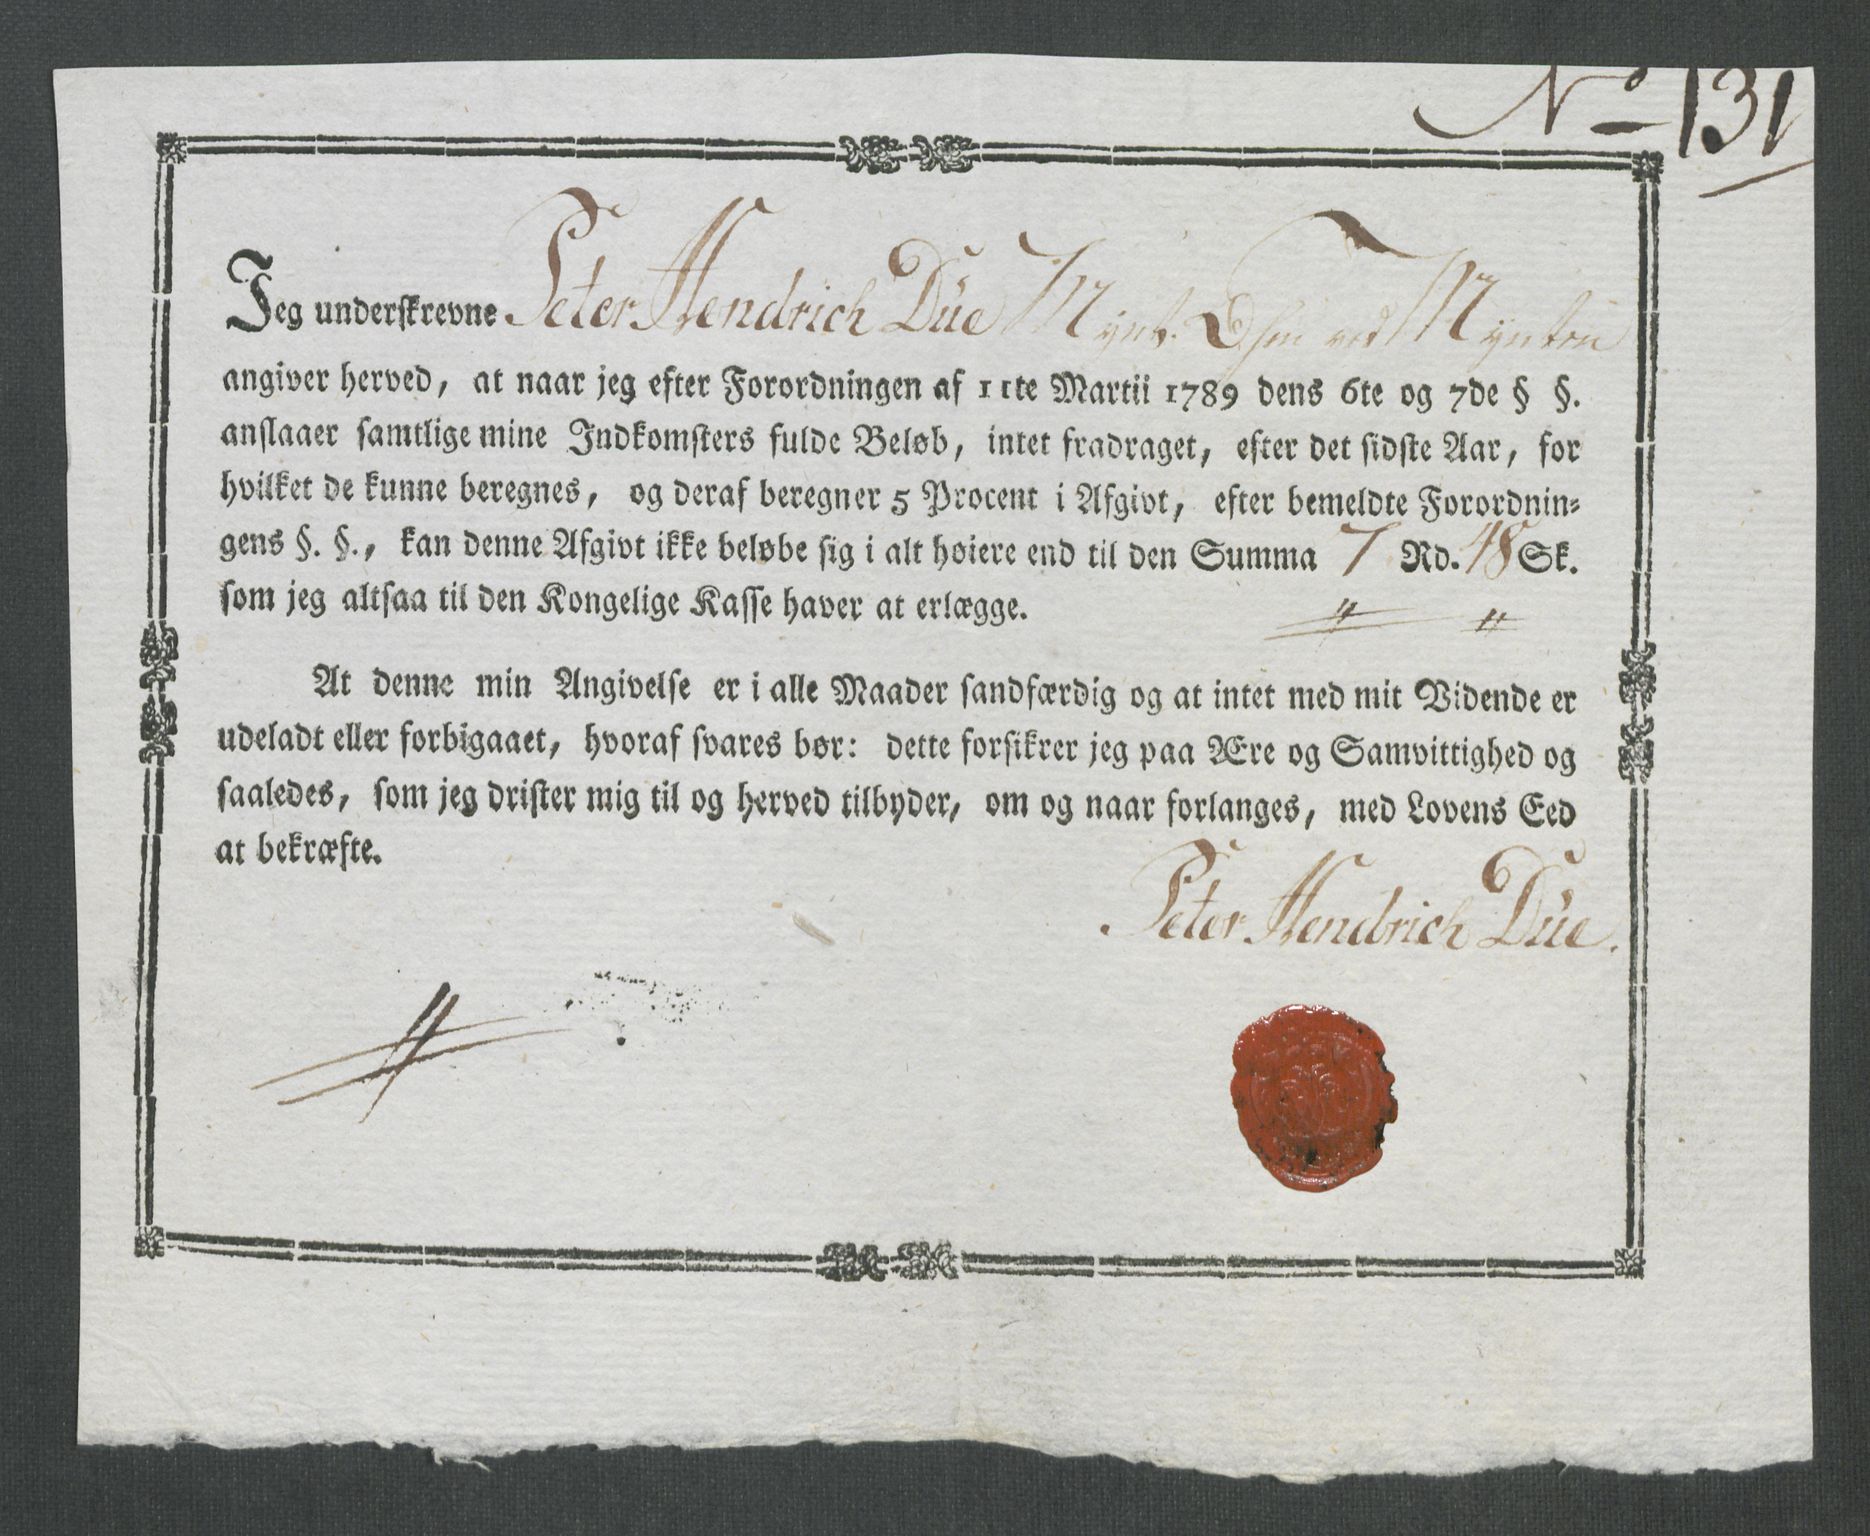 No 131
Jeg underskrevne Peter Hendrich Düe Mynt ved Mynten
angiver herved, at naar jeg efter Forordningen af 11te Martii 1789 dens 6te og 7de § §.
anslaaer samtlige mine Indkomsters fulde Beløb, intet fradraget, efter det sidste Aar, for
hvilket de kunne beregnes, og deraf beregner 5 Procent i Afgivt, efter bemeldte Forordnin=
gens §. §., kan denne Afgivt ikke beløbe sig i alt høiere end til den Summa 7 Rd. 48 Sk.
som jeg altsaa til den Kongelige Kasse haver at erlægge.
At denne min Angivelse er i alle Maader sandfærdig og at intet med mit Vidende er
udeladt eller forbigaaet, hvoraf svares bør: dette forsikrer jeg paa Ære og Samvittighed og
saaledes, som jeg drister mig til og herved tilbyder, om og naar forlanges, med Lovens Eed
at bekræfte.
Peter Hendrich Düe.